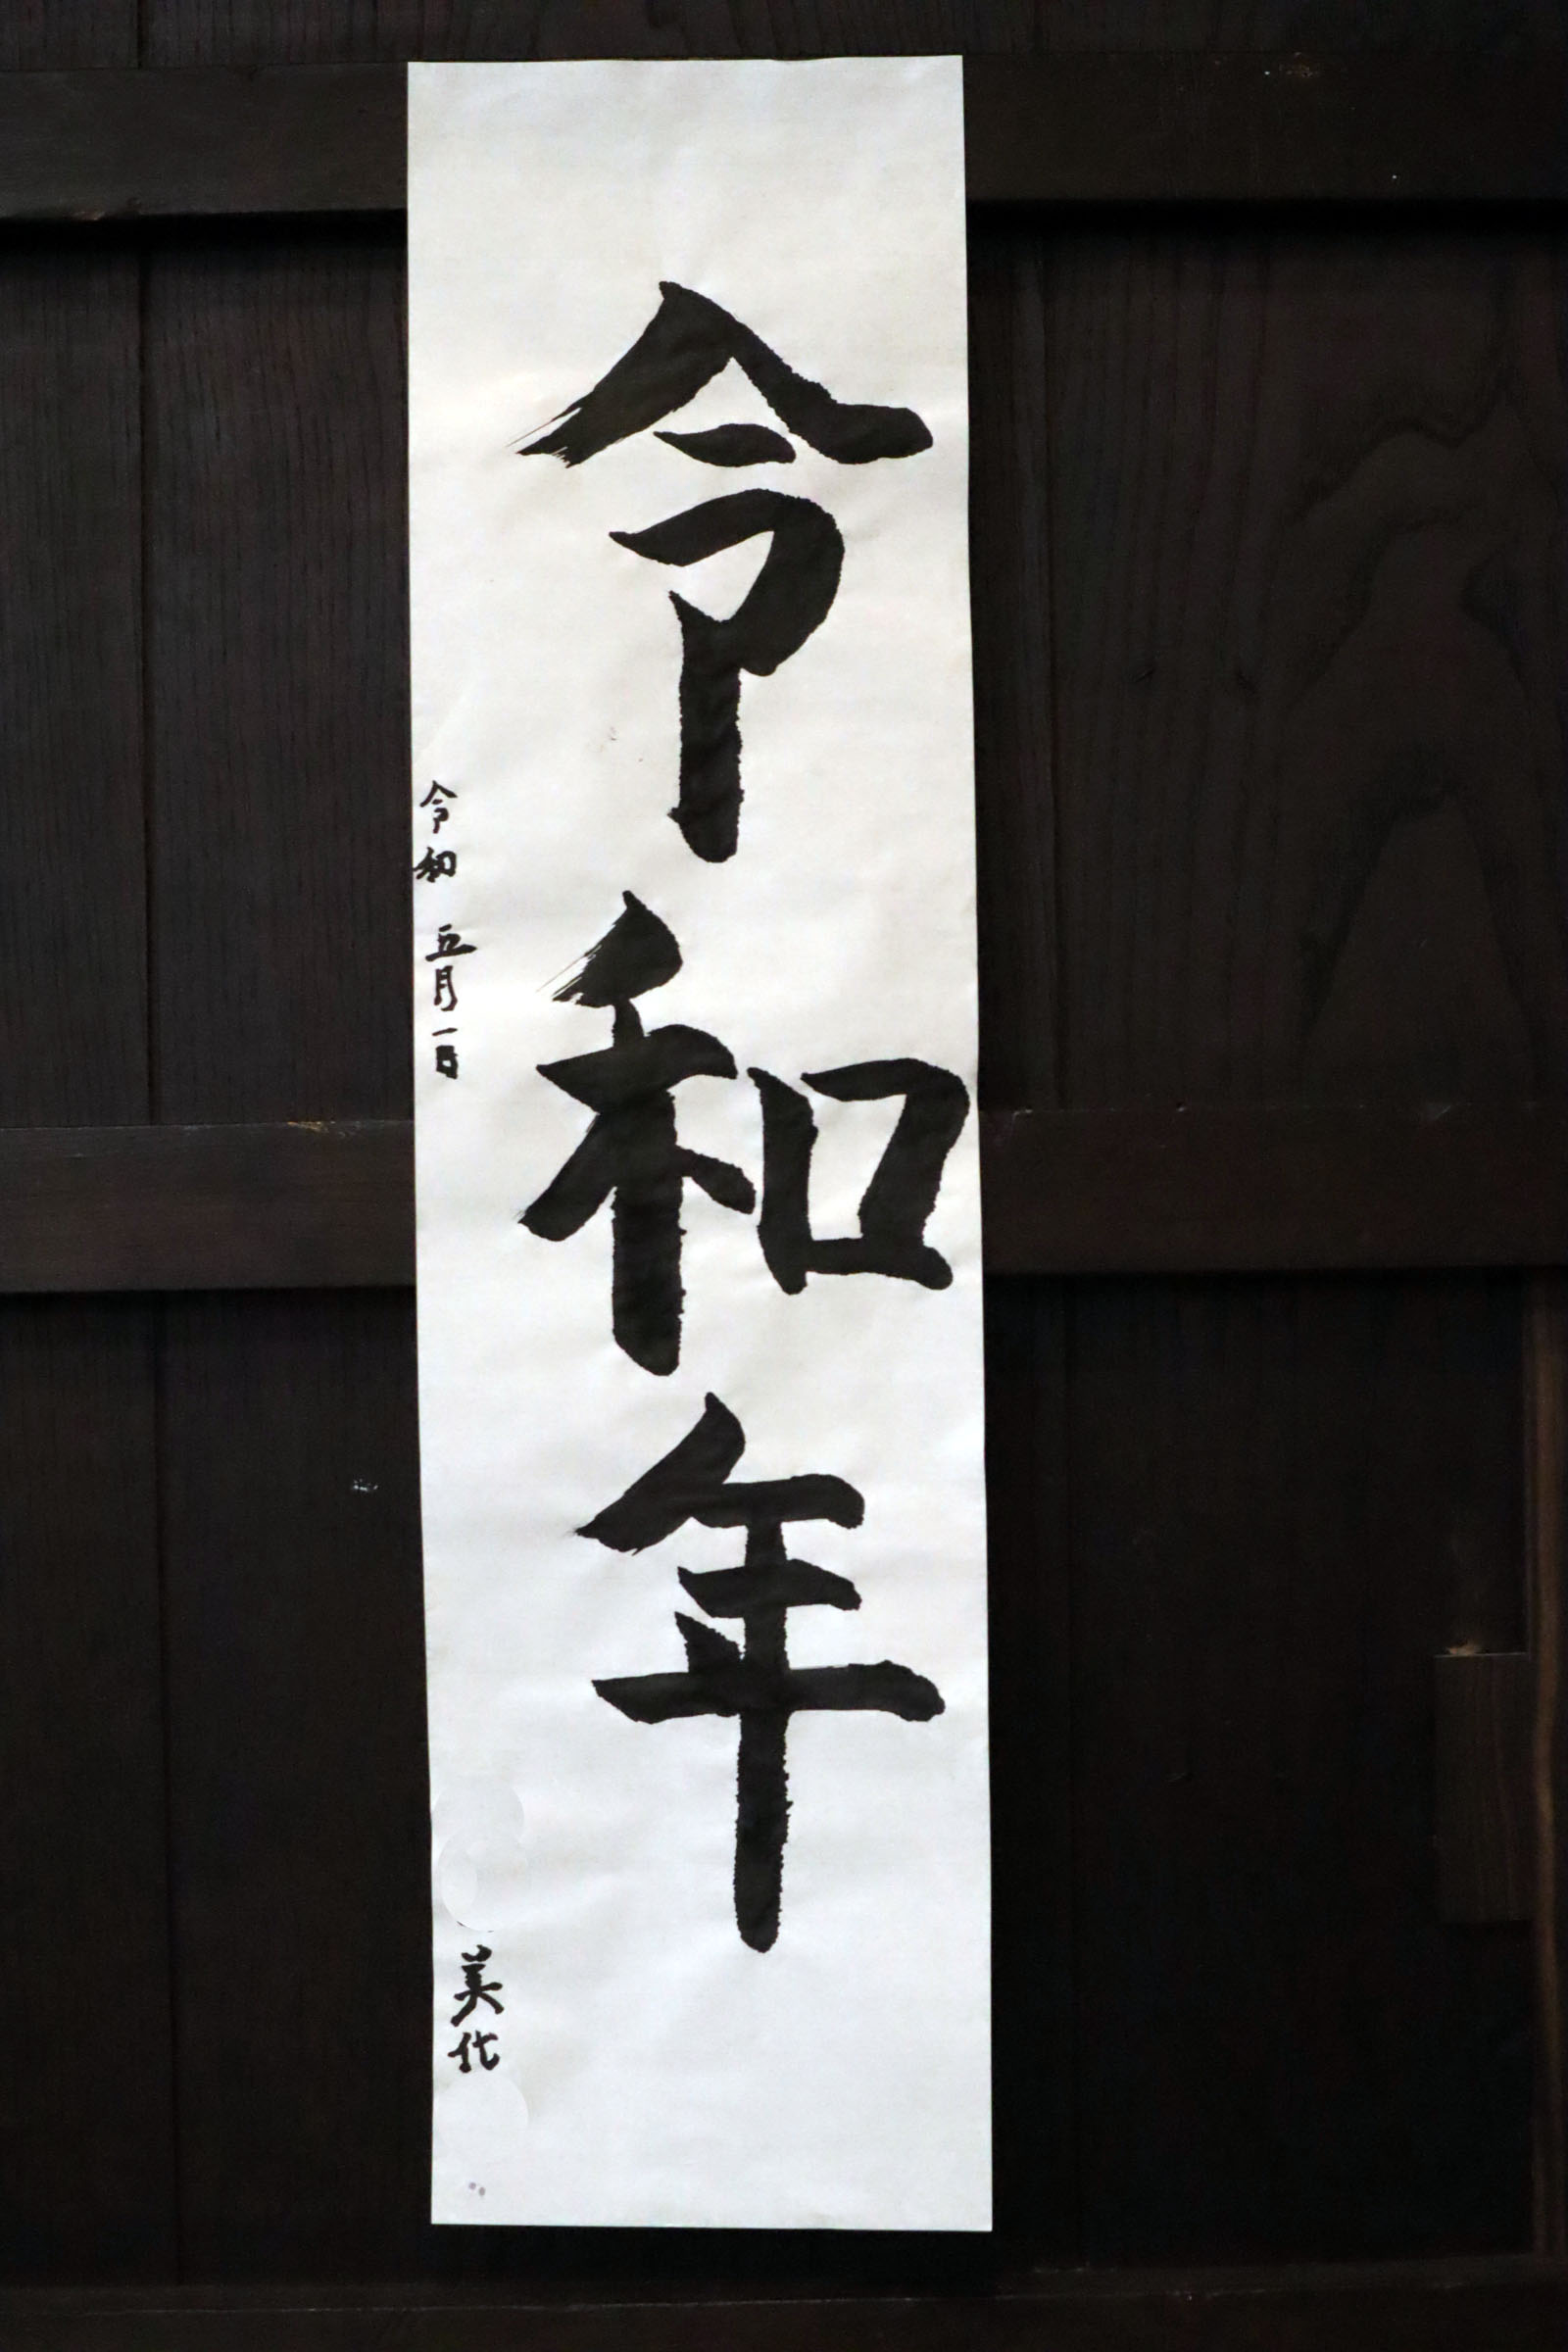 令和年
令和 五月一日
美代